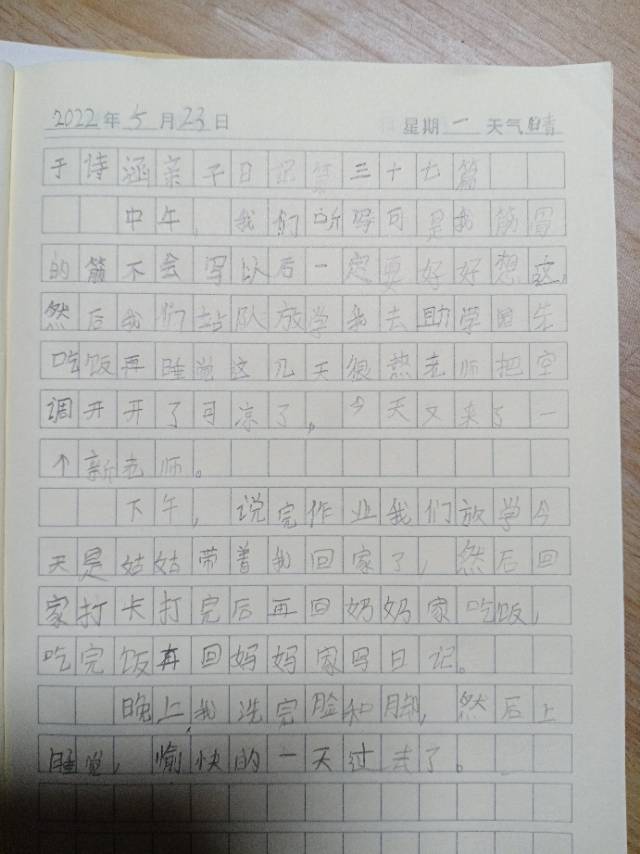 2022年5月23日 星期一 天气晴
于诗涵亲子日记第三十七篇
中午，我们听写可是我筋冒
的筋不会写以后一定要好好想这，
然后我们站队放学我去助学园先
吃饭再睡觉这几天很热老师把空
调开开了可凉了。今天又来了一
个新老师。
下午，说完作业我们放学今
天是姑姑带着我回家了，然后回
家打卡打完后再回奶奶家吃饭，
吃完饭再回妈妈家写日记。
晚上，我洗完脸和脚，然后上
睡觉，愉快的一天过去了。